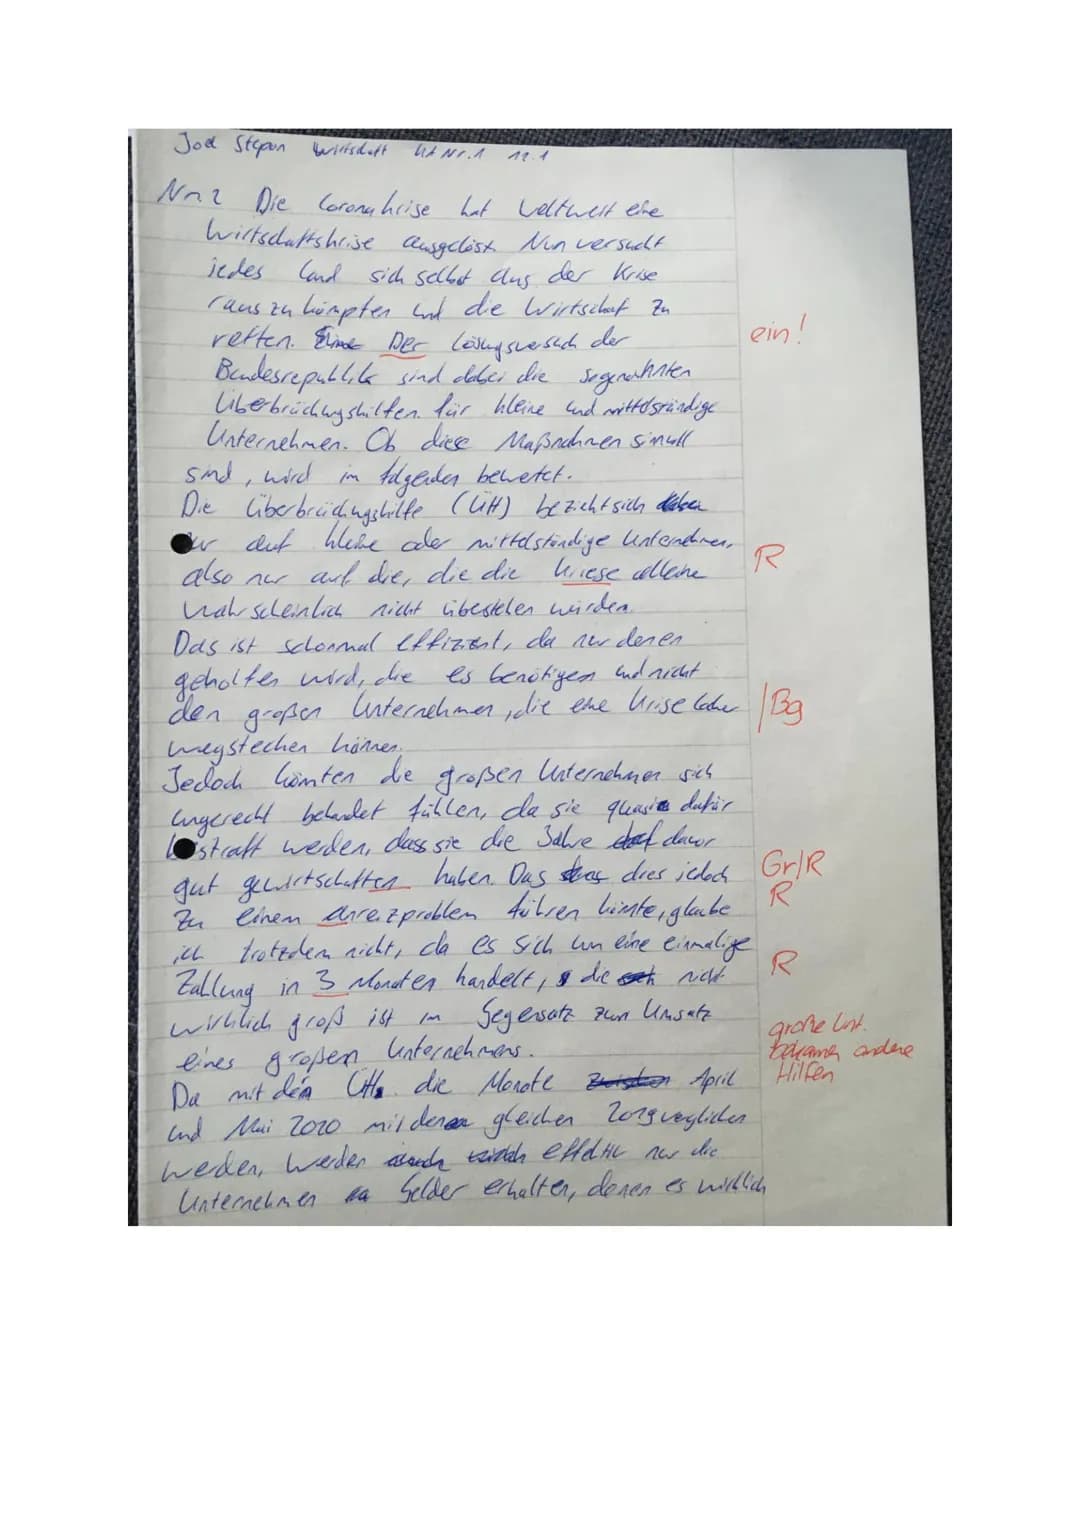 Joel Stepan Wirtschaft KA Nr.1 12.1
Nr. 2 Die Coronakrise hat Weltweit eine
Wirtschaftskrise ausgelöst. Nun versucht
jedes Land sich selbst aus der Krise
raus zu kämpfen und die Wirtschaf zu
retten. Der Lösungsversuch der
ein!
Bundesrepublik sind dabei die sogenannten
Überbrückungshilfen für kleine und mittelständige
Unternehmen. Ob diese Maßnahmen sinvoll
sind, wird im folgenden bewertet.
Die Überbrückungshilfe (ÜH) bezieht sich
nur auf kleine oder mittelständige Unternehmen,
also nur auf die, die die Kriese alleine
R
wahrscheinlich nicht überstehen würden.
Das ist schonmal effizient, da nur denen
geholfen wird, die es benötigen und nicht
den großen Unternehmen, die eine Krise locker
/Bg
wegstecken können.
Jedoch könnten die großen Unternehmen sich
ungerecht behandet fühlen, da sie quasi dafür
bestraft werden, dass sie die Jahre davor
gut gewirtschaften haben. Das dies jedoch
Gr/R
R
zu einem anreizproblem führen könnte, glaube
ich trotzdem nicht, da es sich um eine einmalige
Zahlung in 3 Monaten handelt, die nicht
R
wirklich groß ist im Gegensatz zum Umsatz
eines großen Unternehmens.
große Unt.
bekamen andere
Hilfen
Da mit den ÜH die Monate April
und Mai 2020 mit den gleichen 2019 verglichen
werden, werden effektiv nur die
Unternehmen Gelder erhalten, denen es wirklich